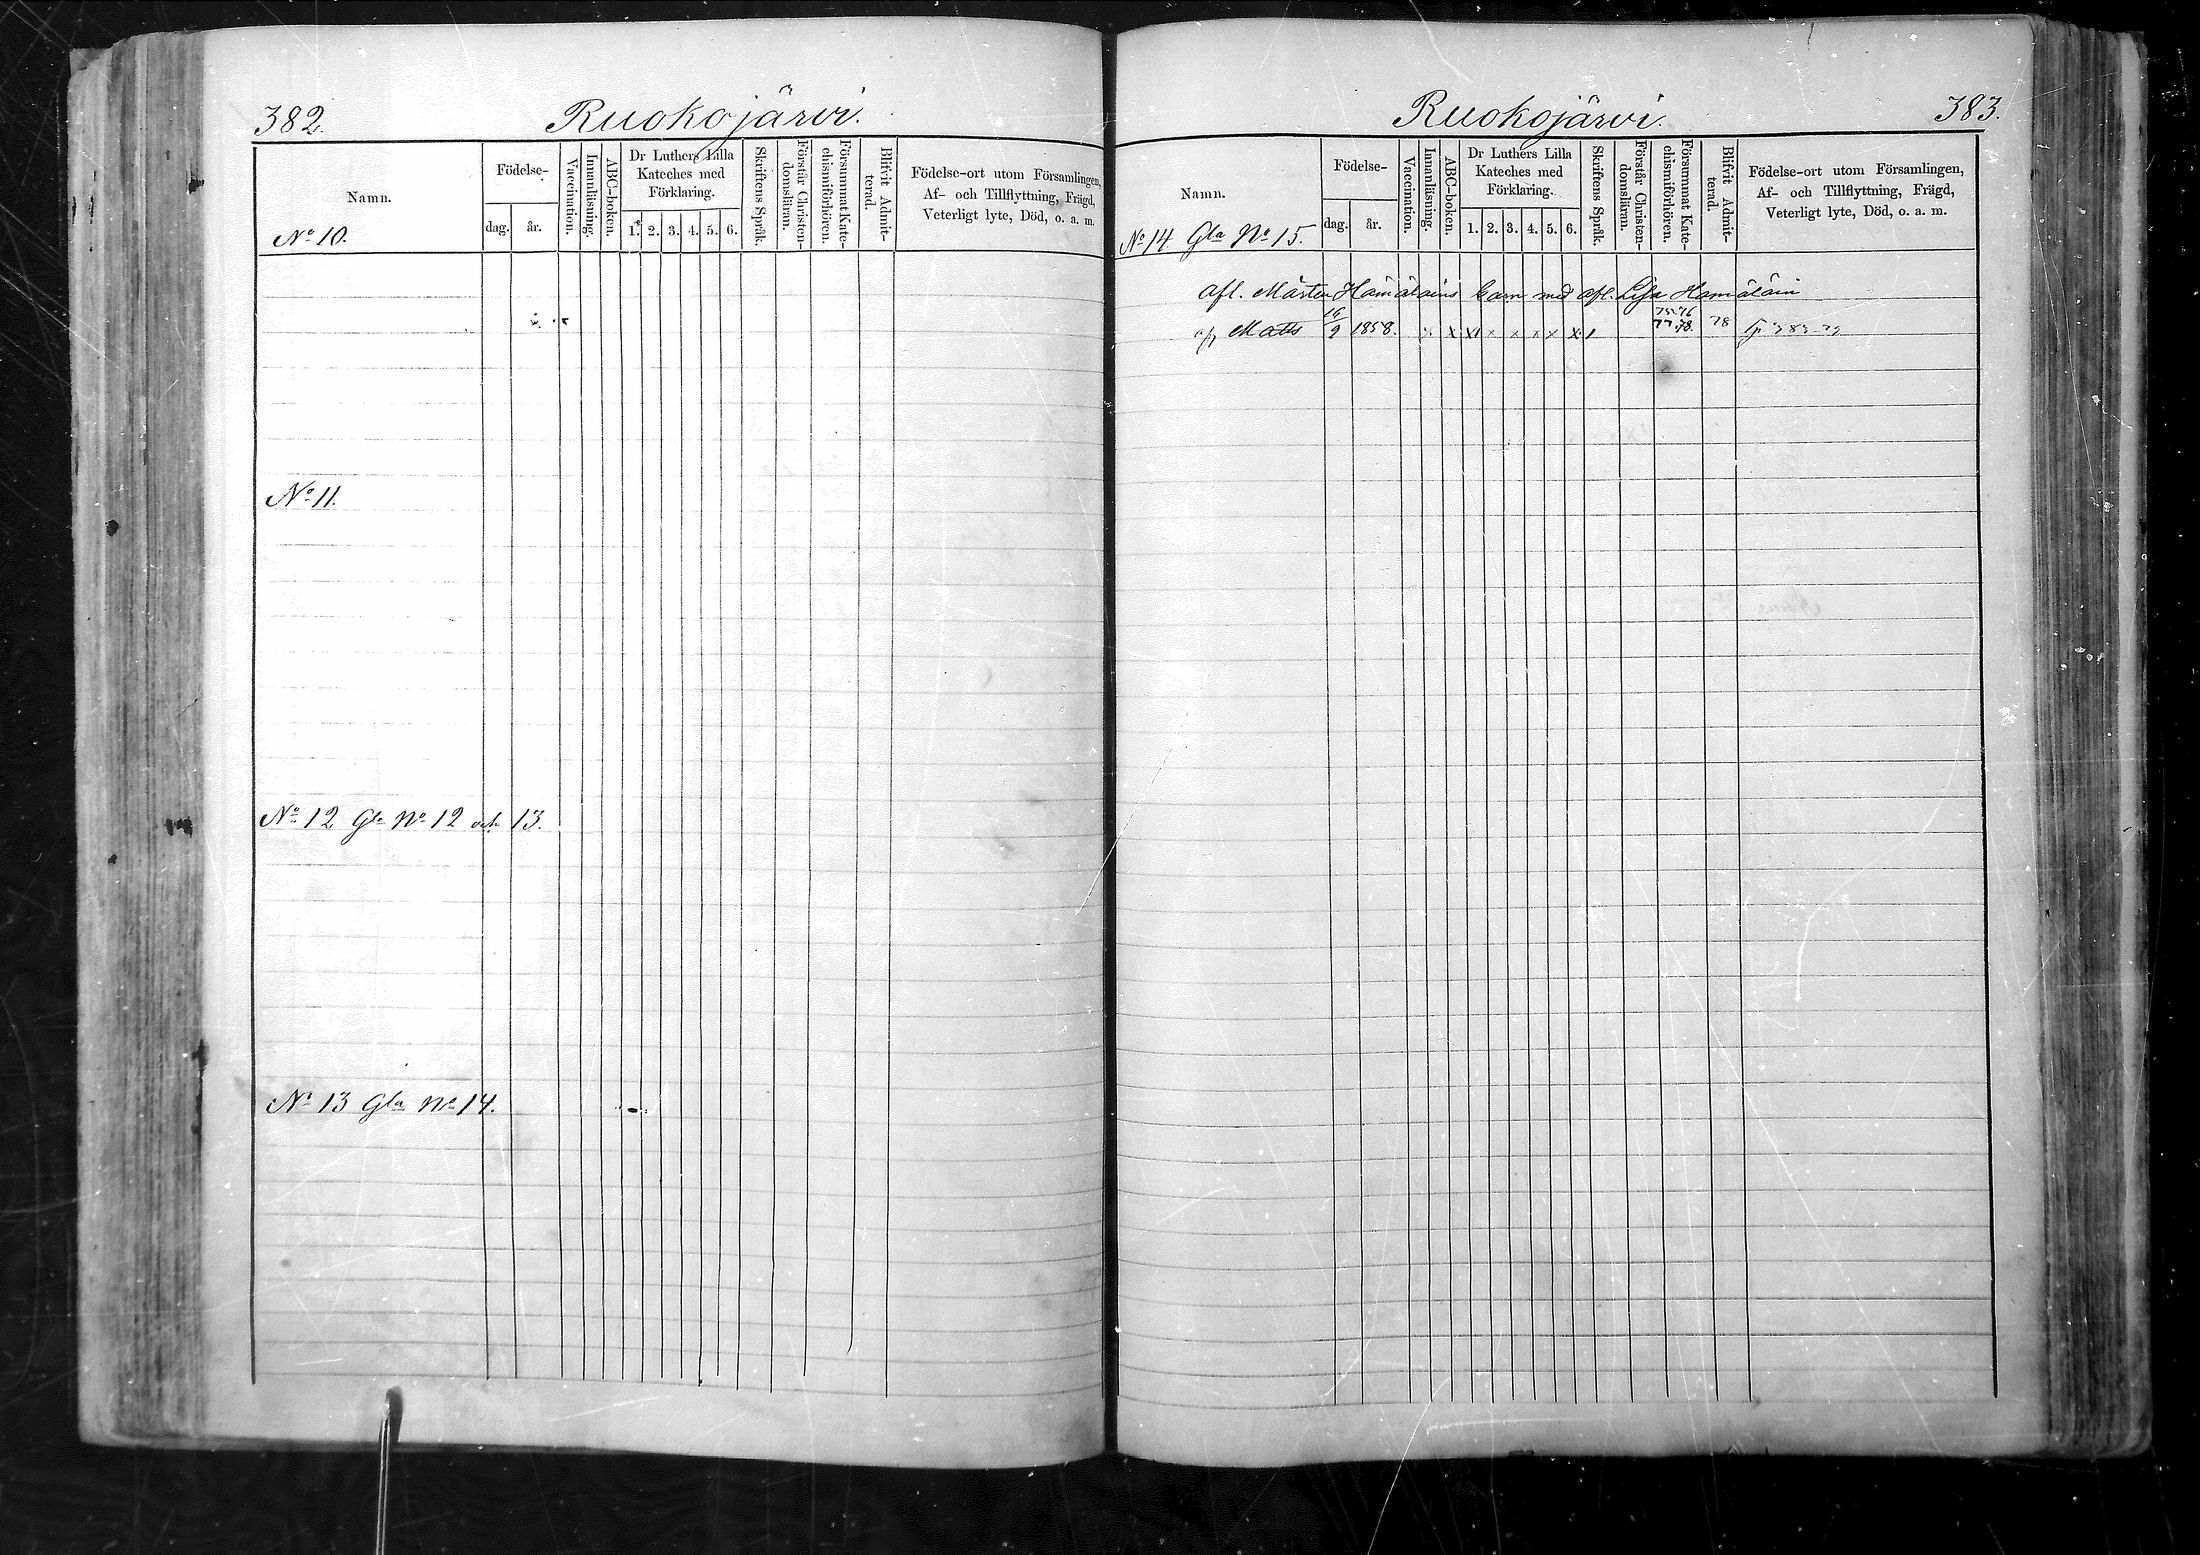 382.
Ruokojärvi.
Namn.
Födelse-
dag.
år.
Vaccination.
Innanläsning.
ABC-boken.
Dr Luthers Lilla
Kateches med
Förklaring.
1. 2. 3. 4. 5. 6.
Skriftens Språk.
Förstår Christen-
domsläran.
Försummat Kate-
chismiförhören.
Blifvit Admit-
terad.
Födelse-ort utom Församlingen,
Af- och Tillflyttning, Frägd,
Veterligt lyte, Död, o. a. m.
No 10.
No 11.
No 12 Gla No 12 och 13.
No 13 Gla No 14.
Ruokojärvi.
383.
Namn.
Födelse-
dag.
år.
Vaccination.
Innanläsning.
ABC-boken.
Dr Luthers Lilla
Kateches med
Förklaring.
1. 2. 3. 4. 5. 6.
Skriftens Språk.
Förstår Christen-
domsläran.
Försummat Kate-
chismiförhören.
Blifvit Admit-
terad.
Födelse-ort utom Församlingen,
Af- och Tillflyttning, Frägd,
Veterligt lyte, Död, o. a. m.
No 14 Gla No 15.
Afl. Mårten Hämäläins barn med afl. Lisa Hämäläin
Matts 16/9 1858. x x x x x x x x 75.76 77.78. 78